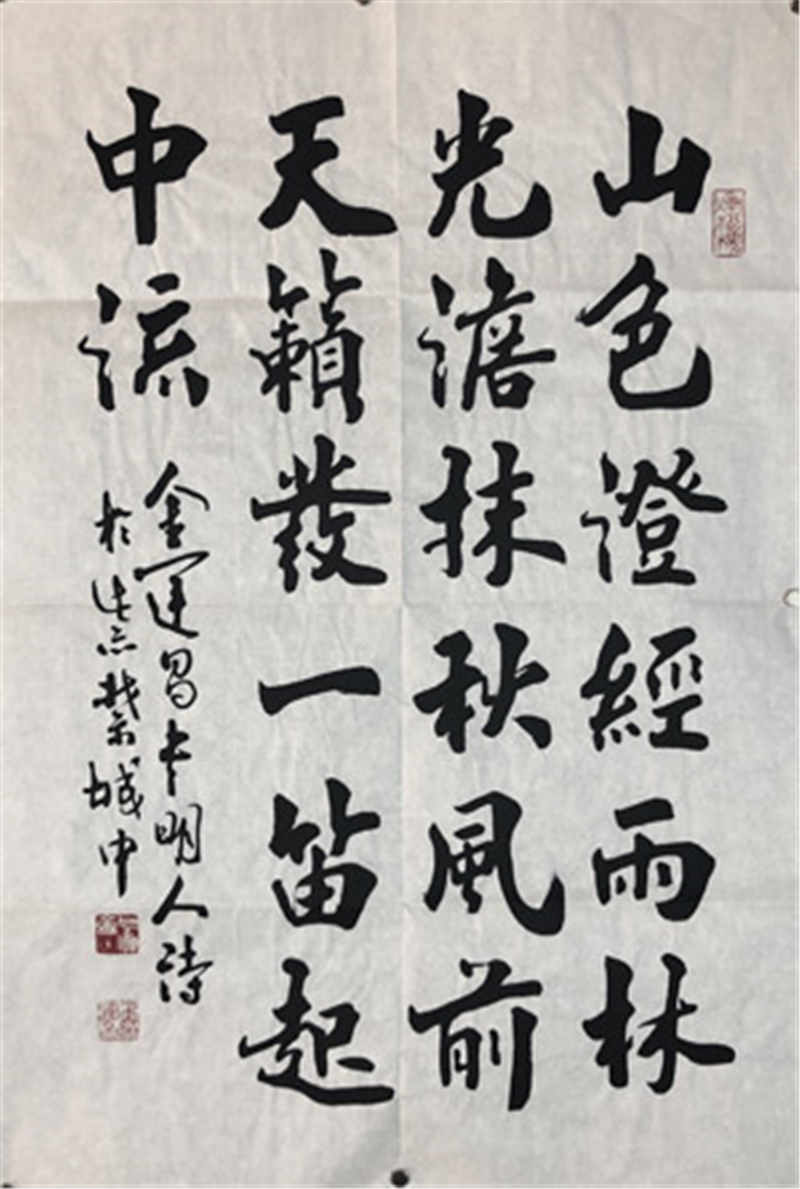 山色澄經雨林
光澹抹秋風前
天籟發一笛起
中流
金運昌书明人詩
於紫禁城中